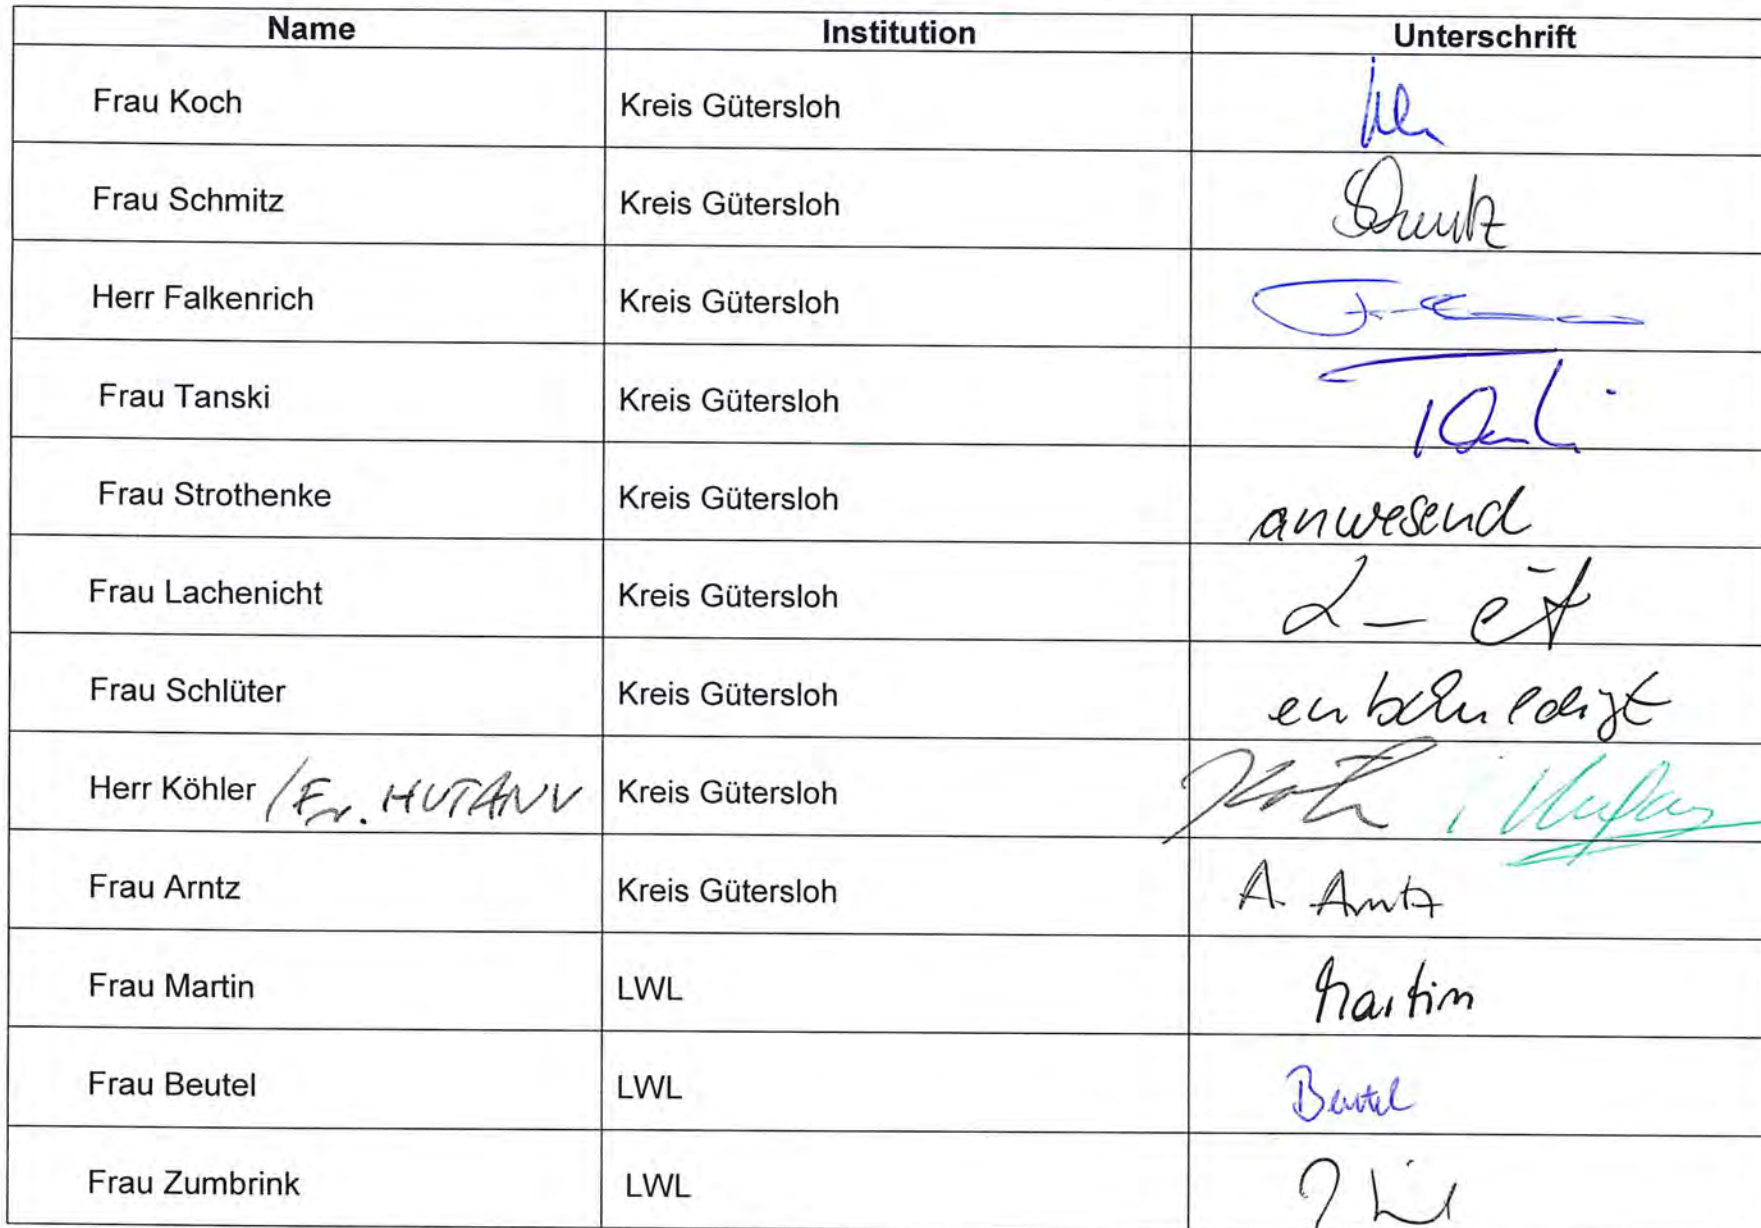 Name Institution Unterschrift
Frau Koch Kreis Gütersloh
Frau Schmitz Kreis Gütersloh Schmitz
Herr Falkenrich Kreis Gütersloh
Frau Tanski Kreis Gütersloh Tanski
Frau Strothenke Kreis Gütersloh anwesend
Frau Lachenicht Kreis Gütersloh
Frau Schlüter Kreis Gütersloh entschuldigt
Herr Köhler /Fr. HUTANU Kreis Gütersloh
Frau Arntz Kreis Gütersloh A. Arntz
Frau Martin LWL Martin
Frau Beutel LWL Beutel
Frau Zumbrink LWL